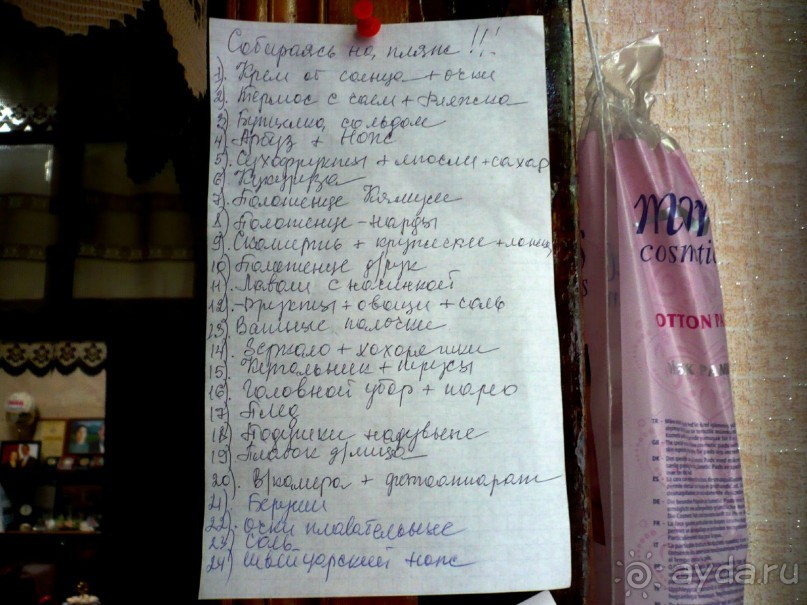 Собираясь на пляж!!!
1). Крем от солнца + очки
2). Термос с чаем + Ряжека
3) Бутылка со льдом
4) Арбуз + Нож
5). Сухофрукты + мюсли + сахар
6) Кукуруза
7). Полотенце
8) Полотенце - нарды
9). Скатерть + кружечки + ложки
10) Полотенце д/рук
11). Лаваш с начинкой
12). Фрукты + овощи + соль
13). Ватные палочки
14). Зеркало +
15) Купальник + трусы
16). Головной убор + парео
17) Плед
18) Подушки надувные
19) Платок д/лица
20). В/камера + фотоаппарат
21) Беруши
22). Очки плавательные
23) Соль
24) Швейцарский нож
cosmetic
OTTON PA
ayda.ru